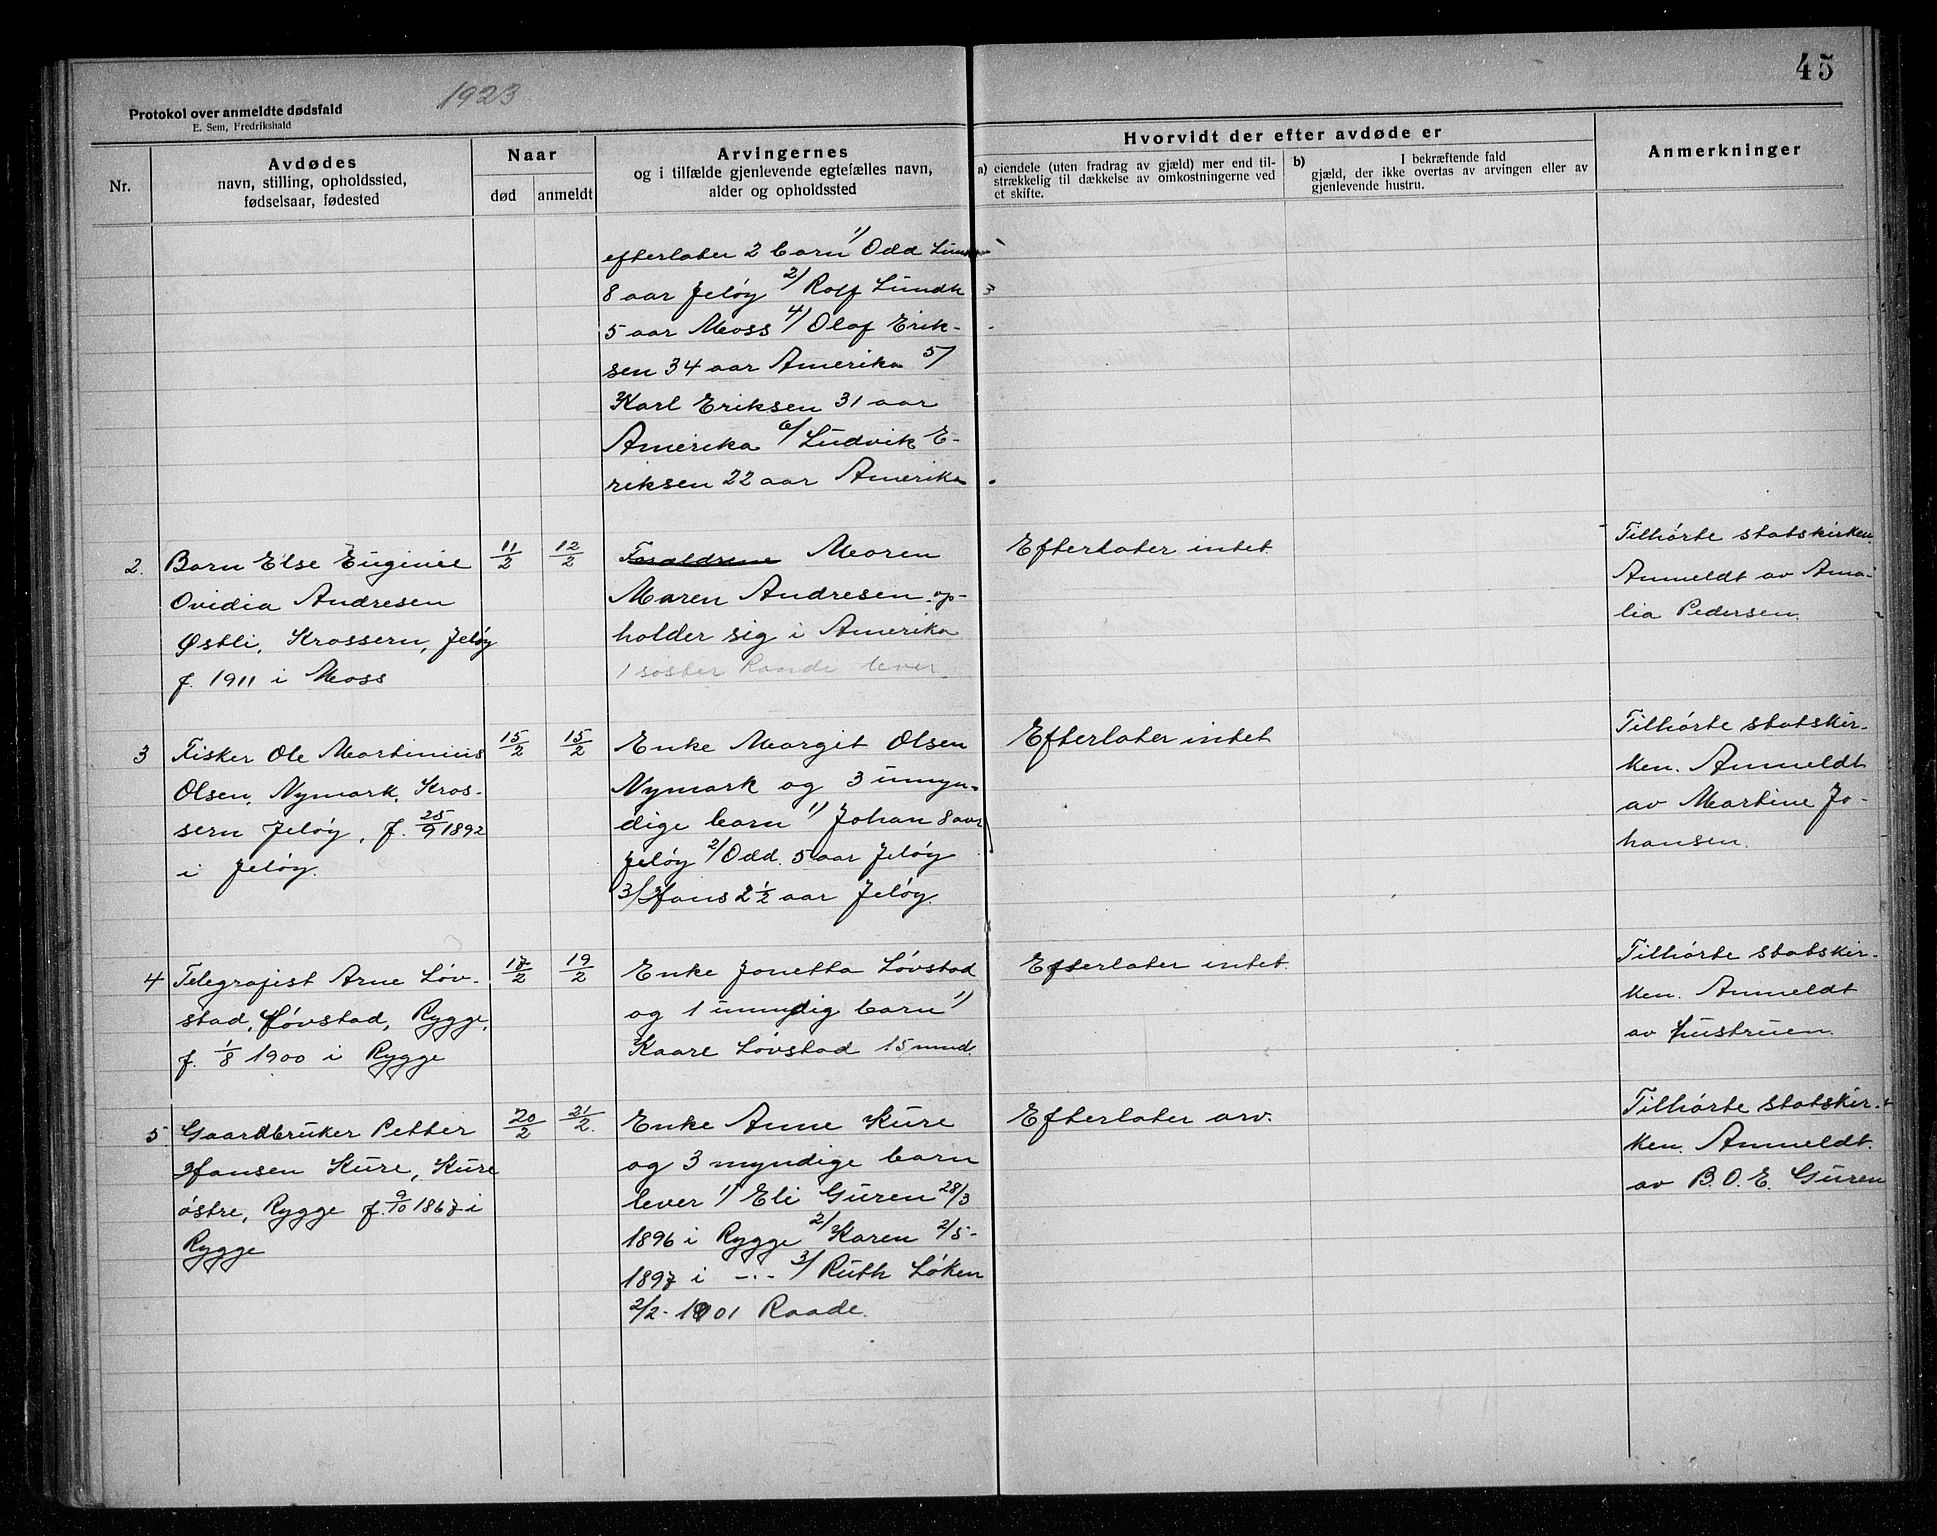 45
1923
Protokol over anmeldte dødsfald
E. Sem, Fredrikshald
Nr.
Avdødes
navn, stilling, opholdssted,
fødselsaar, fødested
Naar
død
anmeldt
Arvingernes
og i tilfælde gjenlevende egtefælles navn,
alder og opholdssted
Hvorvidt der efter avdøde er
a) eiendele (uten fradrag av gjæld) mer end til-
strækkelig til dækkelse av omkostningerne ved
et skifte.
b) I bekræftende fald
gjæld, der ikke overtas av arvingen eller av
gjenlevende hustru.
Anmerkninger
efterlater 2 barn 1/ Odd
8 aar Jeløy 2/ Rolf Lundh
5 aar Moss 4/ Olaf Erik-
sen 34 aar Amerika 5/
Karl Eriksen 31 aar
Amerika 6/ Ludvik E-
riksen 22 aar Amerika.
2. Barn Else Euginie
Ovidia Andresen
Østli, Krossern, Jeløy
f. 1911 i Moss
11/2
12/2
Foraldrene Moren
Maren Andresen op-
holder sig i Amerika
1 søster Randi lever
Efterlater intet
Tilhørte statskirken.
Anmeldt av Ama-
lia Pedersen.
3 Fisker Ole Martinius
Olsen, Nymark, Kros-
sern Jeløy, f. 25/9 1892
i Jeløy.
15/2
15/2
Enke Margit Olsen
Nymark og 3 umyn-
dige barn 1/ Johan 8 aar
Jeløy 2/ Odd. 5 aar Jeløy
3/ Hans 2 1/2 aar Jeløy.
Efterlater intet
Tilhørte statskir-
ken. Anmeldt
av Martine Jo-
hansen.
4 Telegrafist Arne Løv-
stad, Løvstad, Rygge,
f. 1/8 1900 i Rygge
17/2
19/2
Enke Jonetta Løvstad
og 1 umyndig barn 1/
Kaare Løvstad 15 mnd.
Efterlater intet.
Tilhørte statskir-
ken. Anmeldt
av hustruen.
5. Gaardbruker Petter
Hansen Kure, Kure
østre, Rygge f. 9/10 1867 i
Rygge
20/2
21/2.
Enke Anne Kure
og 3 myndige barn
lever 1/ Eli Guren 28/3
1896 i Rygge 2/ Karen 2/5-
1897 i -"- 3/ Ruth Løken
2/2-1901 Raade.
Efterlater arv.
Tilhørte statskir-
ken. Anmeldt.
av B. O. E. Guren